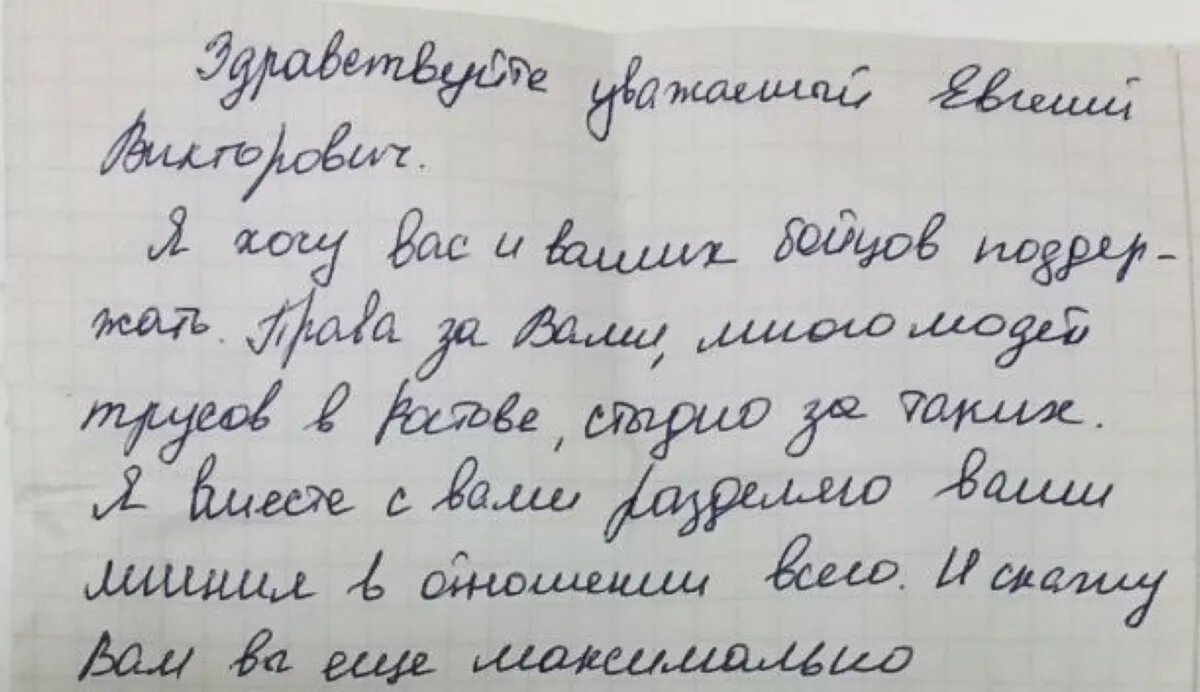 Здравствуйте уважаемый Евгений
Викторович.
Я хочу вас и ваших бойцов поддер-
жать. Права за Вами, много людей
трусов в Ростове, стыдно за таких.
Я вместе с вами разделяю ваши
мнения в отношении всего. И скажу
Вам вы еще максимально